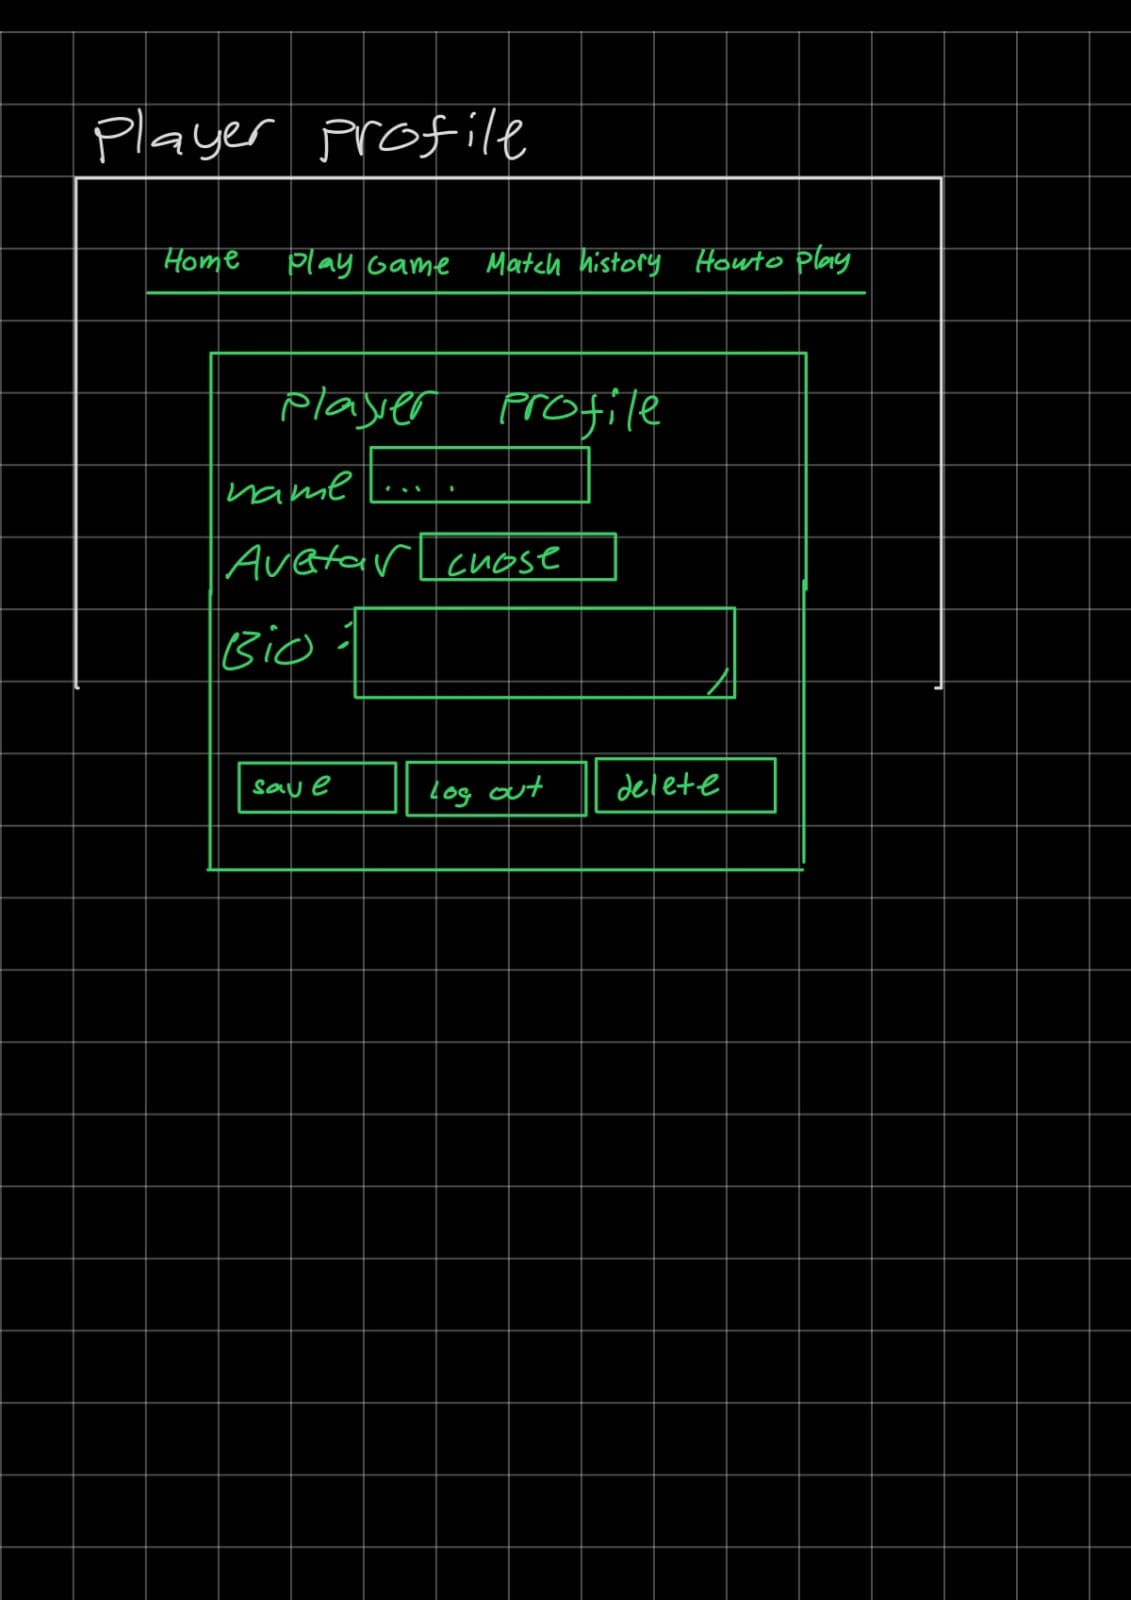 Player Profile
Home Play Game Match history How to Play
Player Profile
name ....
Avatar chose
Bio :
save log out delete